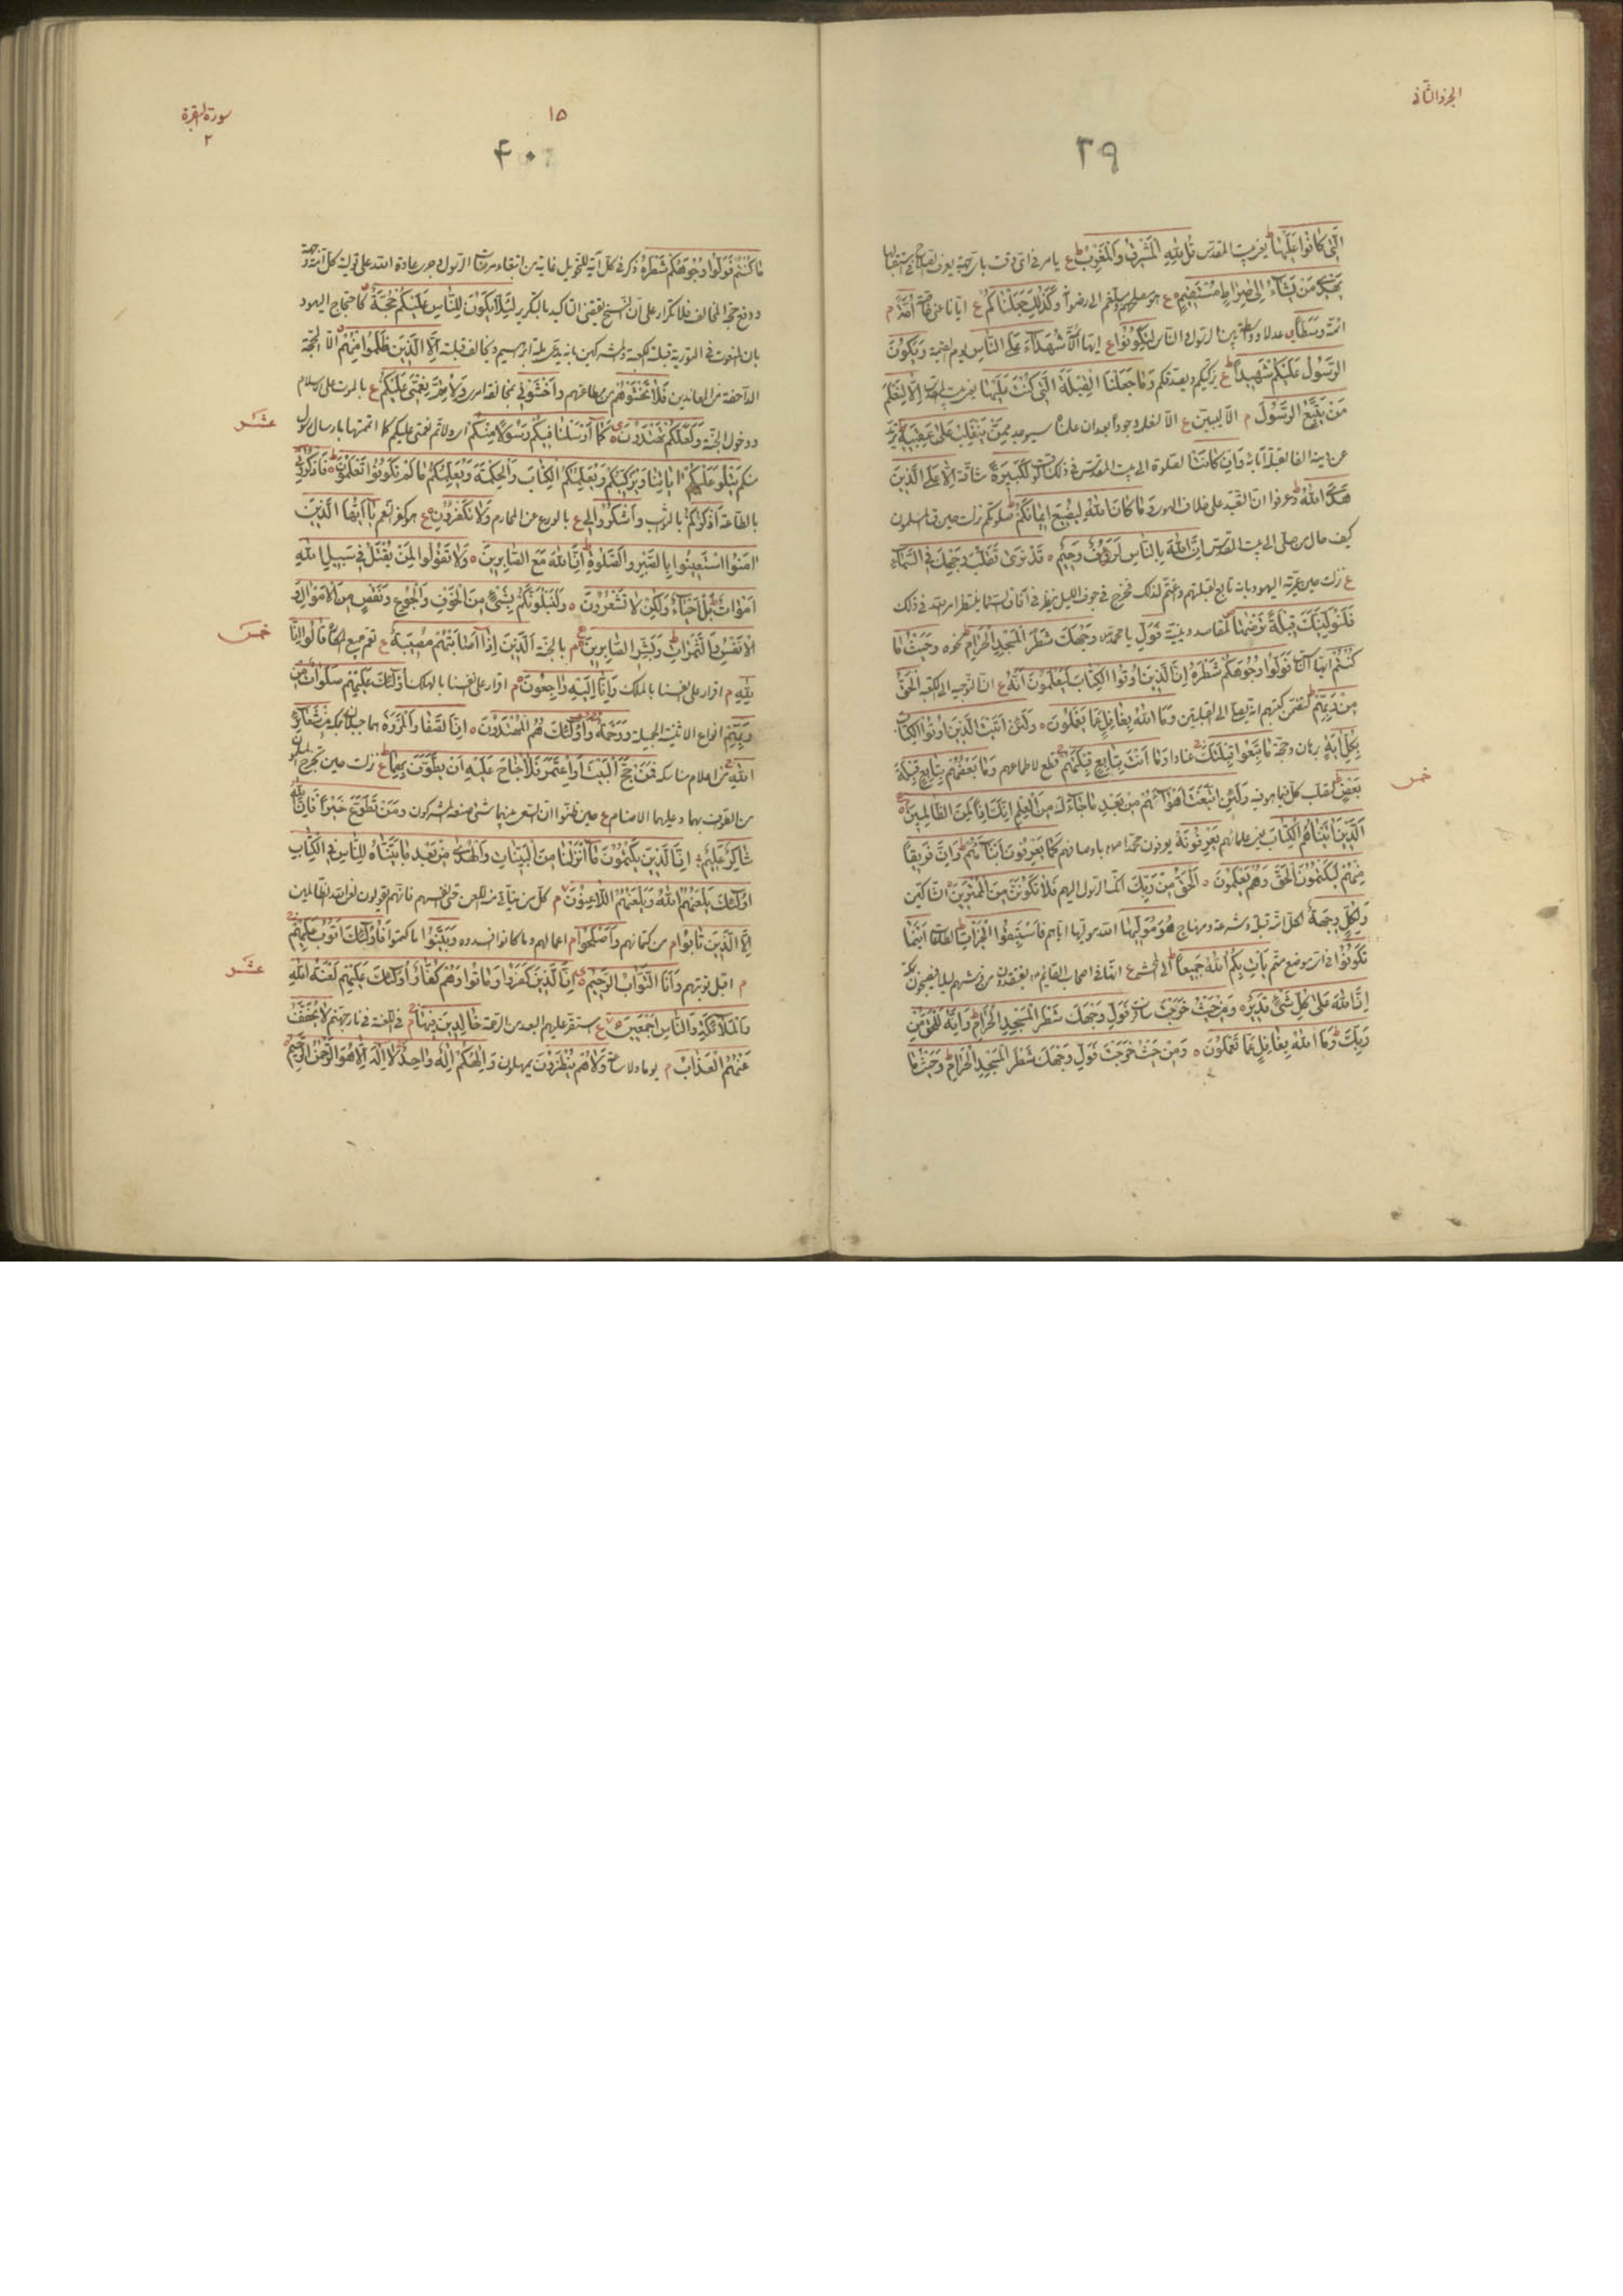 الجزء الثانى
٣٩
الَّتِى كَانُوا عَلَيْهَا يعنى بيت المقدس قُلْ لِلّٰهِ الْمَشْرِقُ وَالْمَغْرِبُ ع يامر فى اى وقت
يَهْدِى مَنْ يَشَاءُ اِلٰى صِرَاطٍ مُسْتَقِيمٍ ع وَكَذٰلِكَ جَعَلْنَاكُمْ ع ايانا عنى خاصة اُمَّةً م
ائمة وَسَطًا عدلا وواسطة بين الرسول والناس لِتَكُونُوا ع ايها شُهَدَاءَ عَلَى النَّاسِ يوم القيمة وَيَكُونَ
الرَّسُولُ عَلَيْكُمْ شَهِيدًا ع يزكيكم ويصدقكم وَمَا جَعَلْنَا الْقِبْلَةَ الَّتِى كُنْتَ عَلَيْهَا يعنى بيت المقدس اِلَّا لِنَعْلَمَ
مَنْ يَتَّبِعُ الرَّسُولَ م الا ليبين ع الا لنعلم وجودا بعد ان علمناه سيوجد مِمَّنْ يَنْقَلِبُ عَلٰى عَقِبَيْهِ يرتد
عن دينه الفا لقبلة آبائه وَاِنْ كَانَتْ الصلوة الى بيت المقدس فى ذلك الوقت لَكَبِيرَةً شاقة اِلَّا عَلَى الَّذِينَ
هَدَى اللّٰهُ وعرفوا ان التعبد على خلاف الهوى وَمَا كَانَ اللّٰهُ لِيُضِيعَ اِيمَانَكُمْ صلوتكم نزلت حين قال المسلمون
كيف حال من صلى الى بيت المقدس اِنَّ اللّٰهَ بِالنَّاسِ لَرَؤُفٌ رَحِيمٌ ٥ قَدْ نَرٰى تَقَلُّبَ وَجْهِكَ فِى السَّمَاءِ
ع نزلت حين عيرته اليهود بانه تابع لقبلتهم واغتم لذلك فخرج فى جوف الليل ينظر فى آفاق السماء ينتظر امر الله فى ذلك
فَلَنُوَلِّيَنَّكَ قِبْلَةً تَرْضٰيهَا لمقاصد دينية فَوَلِّ يا محمد وَجْهَكَ شَطْرَ الْمَسْجِدِ الْحَرَامِ نحوه وَحَيْثُ مَا
كُنْتُمْ ايها الناس فَوَلُّوا وُجُوهَكُمْ شَطْرَهُ اِنَّ الَّذِينَ اُوتُوا الْكِتَابَ لَيَعْلَمُونَ اَنَّهُ ع ان التوجه الى الكعبة الْحَقُّ
مِنْ رَبِّهِمْ لتضمن كتبهم انه يصلى الى القبلتين وَمَا اللّٰهُ بِغَافِلٍ عَمَّا يَعْمَلُونَ ٥ وَلَئِنْ اَتَيْتَ الَّذِينَ اُوتُوا الْكِتَابَ
بِكُلِّ اٰيَةٍ برهان وحجة مَا تَبِعُوا قِبْلَتَكَ عنادا وَمَا اَنْتَ بِتَابِعٍ قِبْلَتَهُمْ قطع لاطماعهم وَمَا بَعْضُهُمْ بِتَابِعٍ قِبْلَةَ
خمس
بَعْضٍ لتصلب كل فيما هو فيه وَلَئِنِ اتَّبَعْتَ اَهْوَاءَهُمْ مِنْ بَعْدِ مَا جَاءَكَ مِنَ الْعِلْمِ اِنَّكَ اِذًا لَمِنَ الظَّالِمِينَ ٥
الَّذِينَ اٰتَيْنَاهُمُ الْكِتَابَ يعنى علمائهم يَعْرِفُونَهُ يعرفون محمدا باوصافه كَمَا يَعْرِفُونَ اَبْنَاءَهُمْ وَاِنَّ فَرِيقًا
مِنْهُمْ لَيَكْتُمُونَ الْحَقَّ وَهُمْ يَعْلَمُونَ ٥ اَلْحَقُّ مِنْ رَبِّكَ انك الرسول اليهم فَلَا تَكُونَنَّ مِنَ الْمُمْتَرِينَ الشاكين
وَلِكُلٍّ وِجْهَةٌ لكل امة قبلة وشرعة ومنهاج هُوَ مُوَلِّيهَا الله موليها اياهم فَاسْتَبِقُوا الْخَيْرَاتِ الطاعات اَيْنَمَا
تَكُونُوا فى اى موضع متم يَاْتِ بِكُمُ اللّٰهُ جَمِيعًا الى المحشر ع انها فى اصحاب القائم يفتقدون من فرشهم ليلا فيصبحون بمكة
اِنَّ اللّٰهَ عَلٰى كُلِّ شَىْءٍ قَدِيرٌ ٥ وَمِنْ حَيْثُ خَرَجْتَ سافرت فَوَلِّ وَجْهَكَ شَطْرَ الْمَسْجِدِ الْحَرَامِ وَاِنَّهُ لَلْحَقُّ مِنْ
رَبِّكَ وَمَا اللّٰهُ بِغَافِلٍ عَمَّا تَعْمَلُونَ ٥ وَمِنْ حَيْثُ خَرَجْتَ فَوَلِّ وَجْهَكَ شَطْرَ الْمَسْجِدِ الْحَرَامِ وَحَيْثُ مَا
١٥
سورة البقرة
٢
٤٠
مَا كُنْتُمْ فَوَلُّوا وُجُوهَكُمْ شَطْرَهُ ذكر فى كل آية للتحويل غاية من ابتغاء مرضات الرسول وجرى عادة الله على تولية كل امة وجهة
ودفع حجة المخالف فلا تكرار على ان النسخ يقتضى التاكيد بالتكرير لِئَلَّا يَكُونَ لِلنَّاسِ عَلَيْكُمْ حُجَّةٌ كاحتجاج اليهود
بان المنعوت فى التورية قبلته الكعبة والمشركين بانه يدعى ملة ابراهيم ويخالف قبلته اِلَّا الَّذِينَ ظَلَمُوا مِنْهُمْ الا الحجة
الداحضة من المعاندين فَلَا تَخْشَوْهُمْ من مطاعنهم وَاخْشَوْنِى بمخالفة امرى وَلِاُتِمَّ نِعْمَتِى عَلَيْكُمْ ع بالموت على الاسلام
عشر
ودخول الجنة وَلَعَلَّكُمْ تَهْتَدُونَ ٥ كَمَا اَرْسَلْنَا فِيكُمْ رَسُولًا مِنْكُمْ اى ولاتم نعمتى عليكم كما اتممتها بارسال رسول
منكم يَتْلُو عَلَيْكُمْ اٰيَاتِنَا وَيُزَكِّيكُمْ وَيُعَلِّمُكُمُ الْكِتَابَ وَالْحِكْمَةَ وَيُعَلِّمُكُمْ مَا لَمْ تَكُونُوا تَعْلَمُونَ ٥ فَاذْكُرُونِى
بالطاعة اَذْكُرْكُمْ بالثواب وَاشْكُرُوا لِى ع بالورع عن المحارم وَلَا تَكْفُرُونِ ع هو كفر النعم يَا اَيُّهَا الَّذِينَ
اٰمَنُوا اسْتَعِينُوا بِالصَّبْرِ وَالصَّلٰوةِ اِنَّ اللّٰهَ مَعَ الصَّابِرِينَ ٥ وَلَا تَقُولُوا لِمَنْ يُقْتَلُ فِى سَبِيلِ اللّٰهِ
اَمْوَاتٌ بَلْ اَحْيَاءٌ وَلٰكِنْ لَا تَشْعُرُونَ ٥ وَلَنَبْلُوَنَّكُمْ بِشَىْءٍ مِنَ الْخَوْفِ وَالْجُوعِ وَنَقْصٍ مِنَ الْاَمْوَالِ وَ
خمس
الْاَنْفُسِ وَالثَّمَرَاتِ وَبَشِّرِ الصَّابِرِينَ م بالجنة اَلَّذِينَ اِذَا اَصَابَتْهُمْ مُصِيبَةٌ ع تعم جميع المكاره قَالُوا اِنَّا
لِلّٰهِ م اقرار على انفسنا بالملك وَاِنَّا اِلَيْهِ رَاجِعُونَ م اقرار على انفسنا بالهلك اُولٰئِكَ عَلَيْهِمْ صَلَوَاتٌ مِنْ
رَبِّهِمْ انواع الاثنية الجميلة وَرَحْمَةٌ وَاُولٰئِكَ هُمُ الْمُهْتَدُونَ ٥ اِنَّ الصَّفَا وَالْمَرْوَةَ هما جبلان بمكة مِنْ شَعَائِرِ
اللّٰهِ من اعلام مناسكه فَمَنْ حَجَّ الْبَيْتَ اَوِ اعْتَمَرَ فَلَا جُنَاحَ عَلَيْهِ اَنْ يَطَّوَّفَ بِهِمَا ع نزلت حين تحرج المسلمون
من الطوف بهما وعليهما الاصنام ع حين ظنوا ان السعى بينهما شىء صنعه المشركون وَمَنْ تَطَوَّعَ خَيْرًا فَاِنَّ اللّٰهَ
شَاكِرٌ عَلِيمٌ ٥ اِنَّ الَّذِينَ يَكْتُمُونَ مَا اَنْزَلْنَا مِنَ الْبَيِّنَاتِ وَالْهُدٰى مِنْ بَعْدِ مَا بَيَّنَّاهُ لِلنَّاسِ فِى الْكِتَابِ
اُولٰئِكَ يَلْعَنُهُمُ اللّٰهُ وَيَلْعَنُهُمُ اللَّاعِنُونَ م كل من يتاتى منه اللعن حتى انفسهم فانهم يقولون لعن الله الظالمين
اِلَّا الَّذِينَ تَابُوا م من كتمانهم وَاَصْلَحُوا م اعمالهم وما كانوا افسدوه وَبَيَّنُوا ما كتموا فَاُولٰئِكَ اَتُوبُ عَلَيْهِمْ
عشر
م اقبل توبتهم وَاَنَا التَّوَّابُ الرَّحِيمُ ٥ اِنَّ الَّذِينَ كَفَرُوا وَمَاتُوا وَهُمْ كُفَّارٌ اُولٰئِكَ عَلَيْهِمْ لَعْنَةُ اللّٰهِ
وَالْمَلٰئِكَةِ وَالنَّاسِ اَجْمَعِينَ ع يستقر عليهم البعد من الرحمة خَالِدِينَ فِيهَا م فى اللعنة فى نار جهنم لَا يُخَفَّفُ
عَنْهُمُ الْعَذَابُ م يوما ولا ساعة وَلَا هُمْ يُنْظَرُونَ يمهلون وَاِلٰهُكُمْ اِلٰهٌ وَاحِدٌ لَا اِلٰهَ اِلَّا هُوَ الرَّحْمٰنُ الرَّحِيمُ